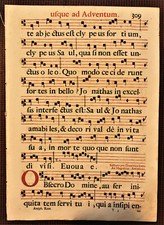 usque ad Adventum. 309
te ab jectus est cly pe us for ti um,
cly pe us Sa ul, qua si non esset un-
ctus o le o. Quo modo ce ci de runt
for tes in bel lo? Jo na thas in excel-
sis tu is in ter fe ctus est: Sa ul & Jo na thas
ama bi les, & de co ri val dè in vi ta
su a, in mor te quo que non sunt
di vi si. Evouae.
OBsecro Do mi ne, au fer ini-
qui ta tem ser vi tu i, qui a insipi en-